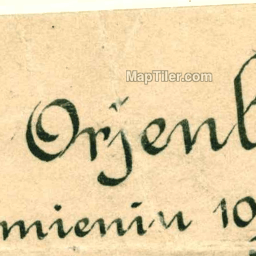 MapTiler.com
Orjenb
mieniu 10